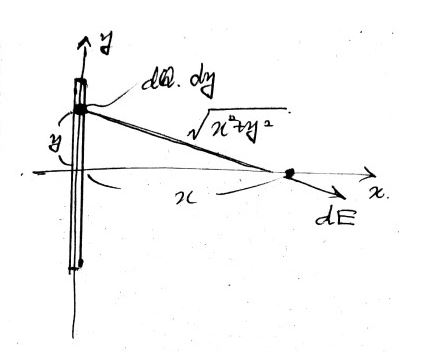 y
dQ. dy
√x²+y²
y
x
x.
dE